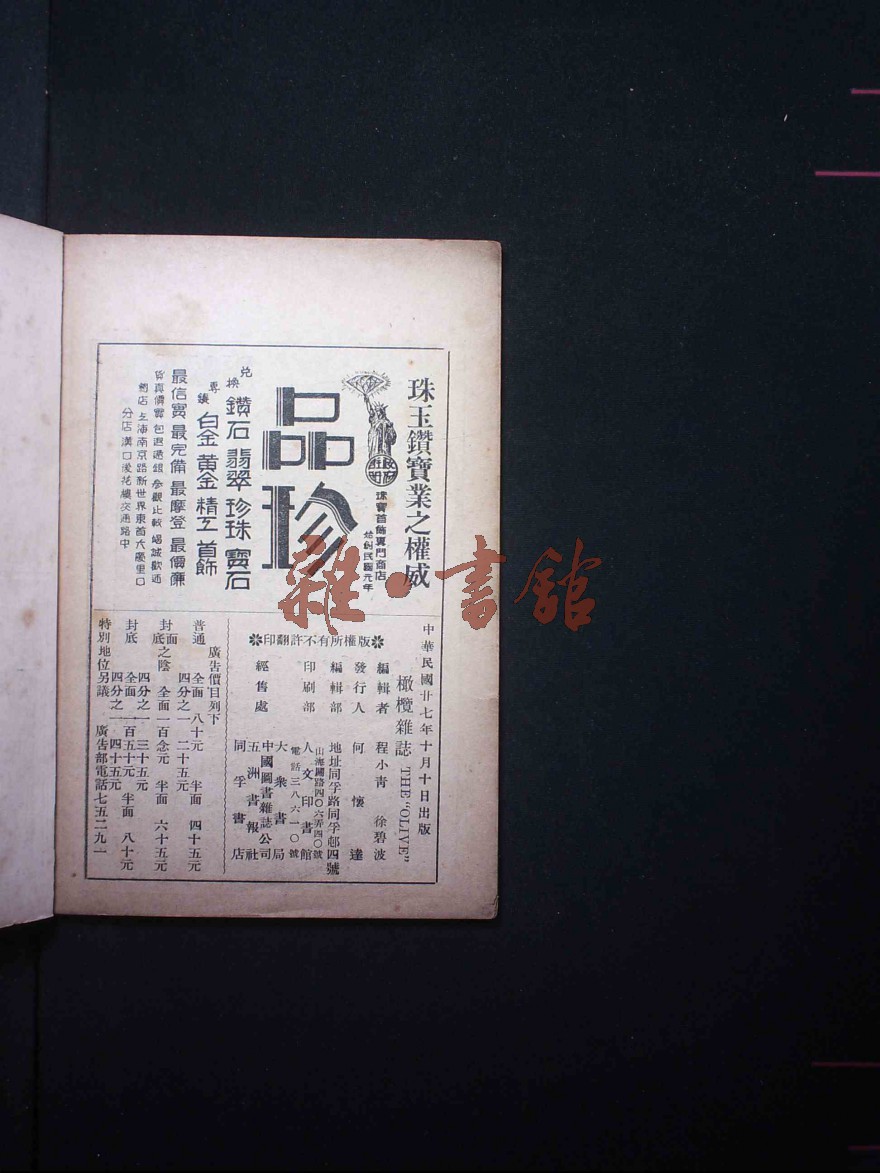 珠玉鑽寶業之權威
珠寶首飾專門商店
始創民國元年
品珍
兌換
鑽石 翡翠 珍珠 寶石
專鑲
白金 黃金 精工 首飾
最信實 最完備 最摩登 最價廉
貨真價實 包退還銀 參觀比較 竭誠歡迎
上海南京路新世界東首大慶里口
分店漢口後花樓交通路中
中華民國廿七年十月十日出版
橄欖雜誌 THE "OLIVE"
編輯者 程小青 徐碧波
發行人 何懷達
編輯部 地址同孚路同孚邨四號
印刷部 人文印書館
山海關路四〇六弄四〇號
電話三八六一〇號
經售處 大衆書局
中國圖書雜誌公司
五洲書報社
同孚書店
版權所有不許翻印
廣告價目列下
普通 全面 八十元 半面 四十五元
四分之一 二十五元
封面底之陰 全面一百念元 半面 六十五元
四分之一 三十五元
封底 全面一百五十元 半面 八十元
四分之一 四十五元
特別地位另議 廣告部電話七五二九一
雜·書館